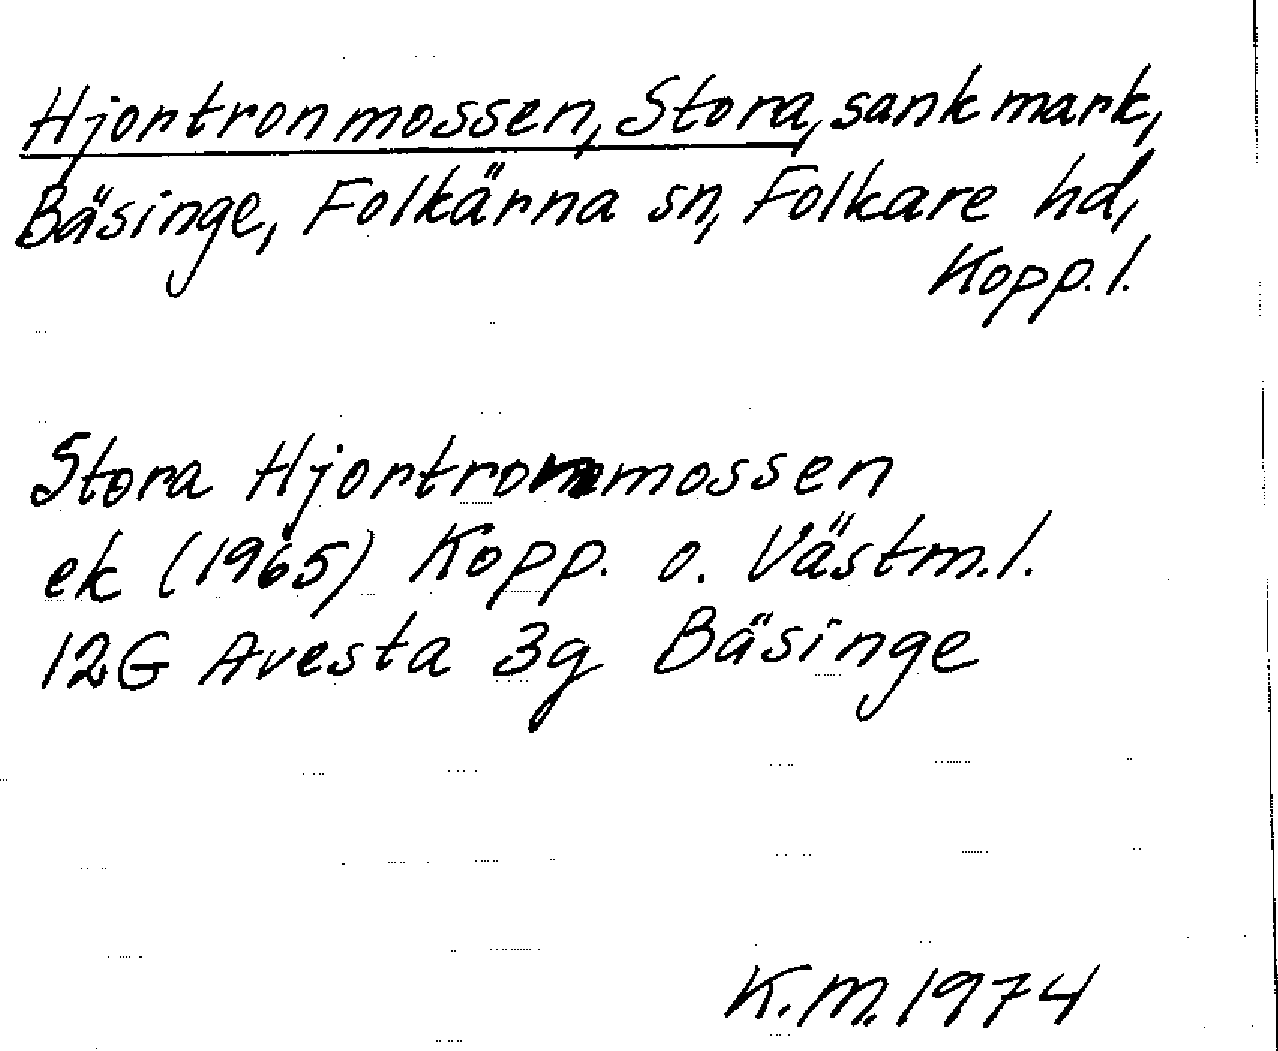 Hjortronmossen, Stora, sank mark,
Bäsinge, Folkärna sn, Folkare hd,
Kopp. l.
Stora Hjortronmossen
ek (1965) Kopp. o. Västm. l.
12G Avesta 3g Bäsinge
K.M. 1974